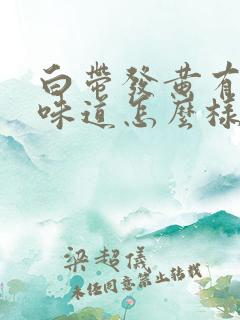 白帶發黃有
味道怎麼樣
梁超儀
未经同意禁止转载